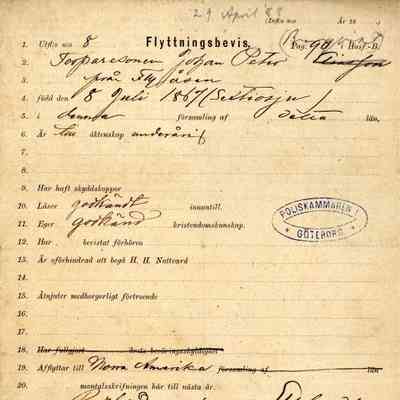 29 April 88
År 18
1. Utfln n:o 8 Flyttningsbevis. Pag. 90 Husf.-B.
2. Torparesonen Johan Peter
3. från
4. född den 8 Juli 1867 (Sextiosju)
5. i denna församling af detta län,
6. Är äktenskap underårig
7.
8.
9. Har haft skyddskoppor
10. Läser godkändt innantill.
11. Eger godkänd kristendomskunskap.
12. Har bevistat förhören
13. Är oförhindrad att begå H. H. Nattvard
14.
15. Åtnjuter medborgerligt förtroende
16.
17.
18. Har fullgjort årets beväringsskyldighet
19. Afflyttar till Norra Amerika församling af län
20. mantalsskrifningen här till nästa år.
POLISKAMMAREN I
* GÖTEBORG *